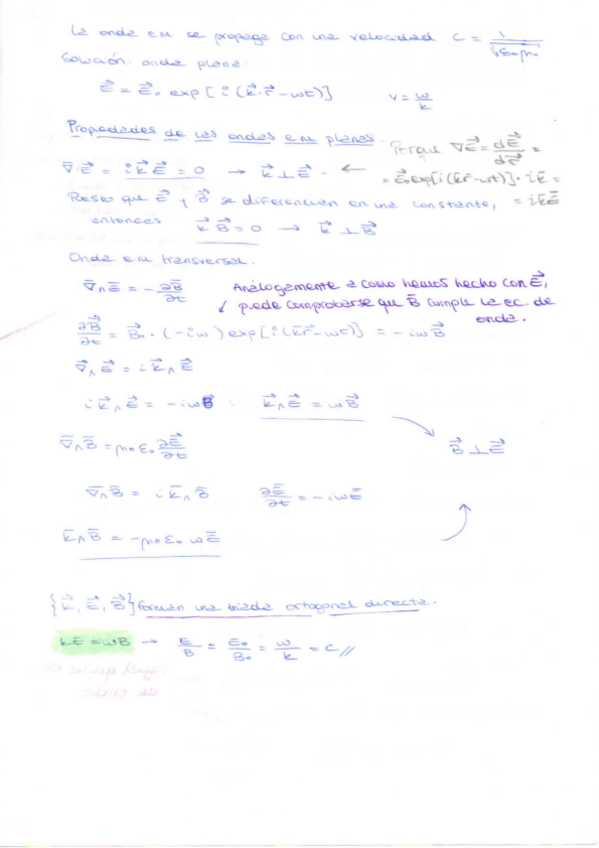 La onda em se propaga con una velocidad c = 1/√(ε₀μ₀)
Solución: onda plana:
E⃗ = E⃗₀ exp[i(k⃗·r⃗ - ωt)]    v = ω/k
Propiedades de las ondas em planas.
∇·E⃗ = i k⃗ E⃗ = 0 → k⃗ ⊥ E⃗ · ← Porque ∇E⃗ = dE⃗/dr⃗ =
= E⃗₀ exp[i(k⃗r⃗-ωt)]· i k̄ =
= i k̄ Ē
Puesto que E⃗ y B⃗ se diferencian en una constante,
entonces k⃗ B⃗ = 0 → k⃗ ⊥ B⃗
Onda em transversal.
∇̄ ∧ Ē = - ∂B̄/∂t    Análogamente a como hemos hecho con E⃗,
↙ puede comprobarse que B̄ cumple la ec. de
onda.
∂B⃗/∂t = B⃗₀ · (-iω) exp[i(k̄r⃗-ωt)] = -iωB⃗
∇⃗ ∧ E⃗ = i k⃗ ∧ E⃗
i k⃗ ∧ E⃗ = -iωB⃗ : k⃗ ∧ E⃗ = ωB⃗
∇̄ ∧ B̄ = μ₀ε₀ ∂E⃗/∂t    B⃗ ⊥ E⃗
∇̄ ∧ B̄ = i k̄ ∧ B̄    ∂Ē/∂t = -iωĒ
k̄ ∧ B̄ = -μ₀ε₀ ωĒ
{k⃗, E⃗, B⃗} forman una triada ortogonal directa.
kE = ωB → E/B = E₀/B₀ = ω/k = c //